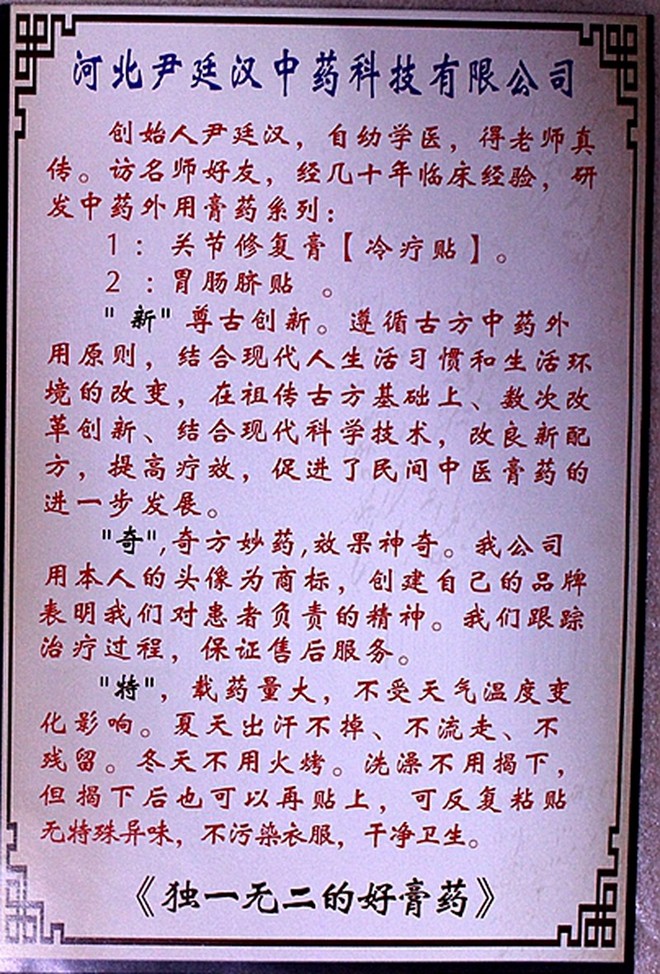 河北尹廷汉中药科技有限公司
创始人尹廷汉，自幼学医，得老师真
传。访名师好友，经几十年临床经验，研
发中药外用膏药系列：
1：关节修复膏【冷疗贴】。
2：胃肠脐贴 。
"新"尊古创新。遵循古方中药外
用原则，结合现代人生活习惯和生活环
境的改变，在祖传古方基础上、数次改
革创新、结合现代科学技术，改良新配
方，提高疗效，促进了民间中医膏药的
进一步发展。
"奇",奇方妙药,效果神奇。我公司
用本人的头像为商标，创建自己的品牌
表明我们对患者负责的精神。我们跟踪
治疗过程，保证售后服务。
"特"，载药量大，不受天气温度变
化影响。夏天出汗不掉、不流走、不
残留。冬天不用火烤。洗澡不用揭下，
但揭下后也可以再贴上，可反复粘贴
无特殊异味，不污染衣服，干净卫生。
《独一无二的好膏药》